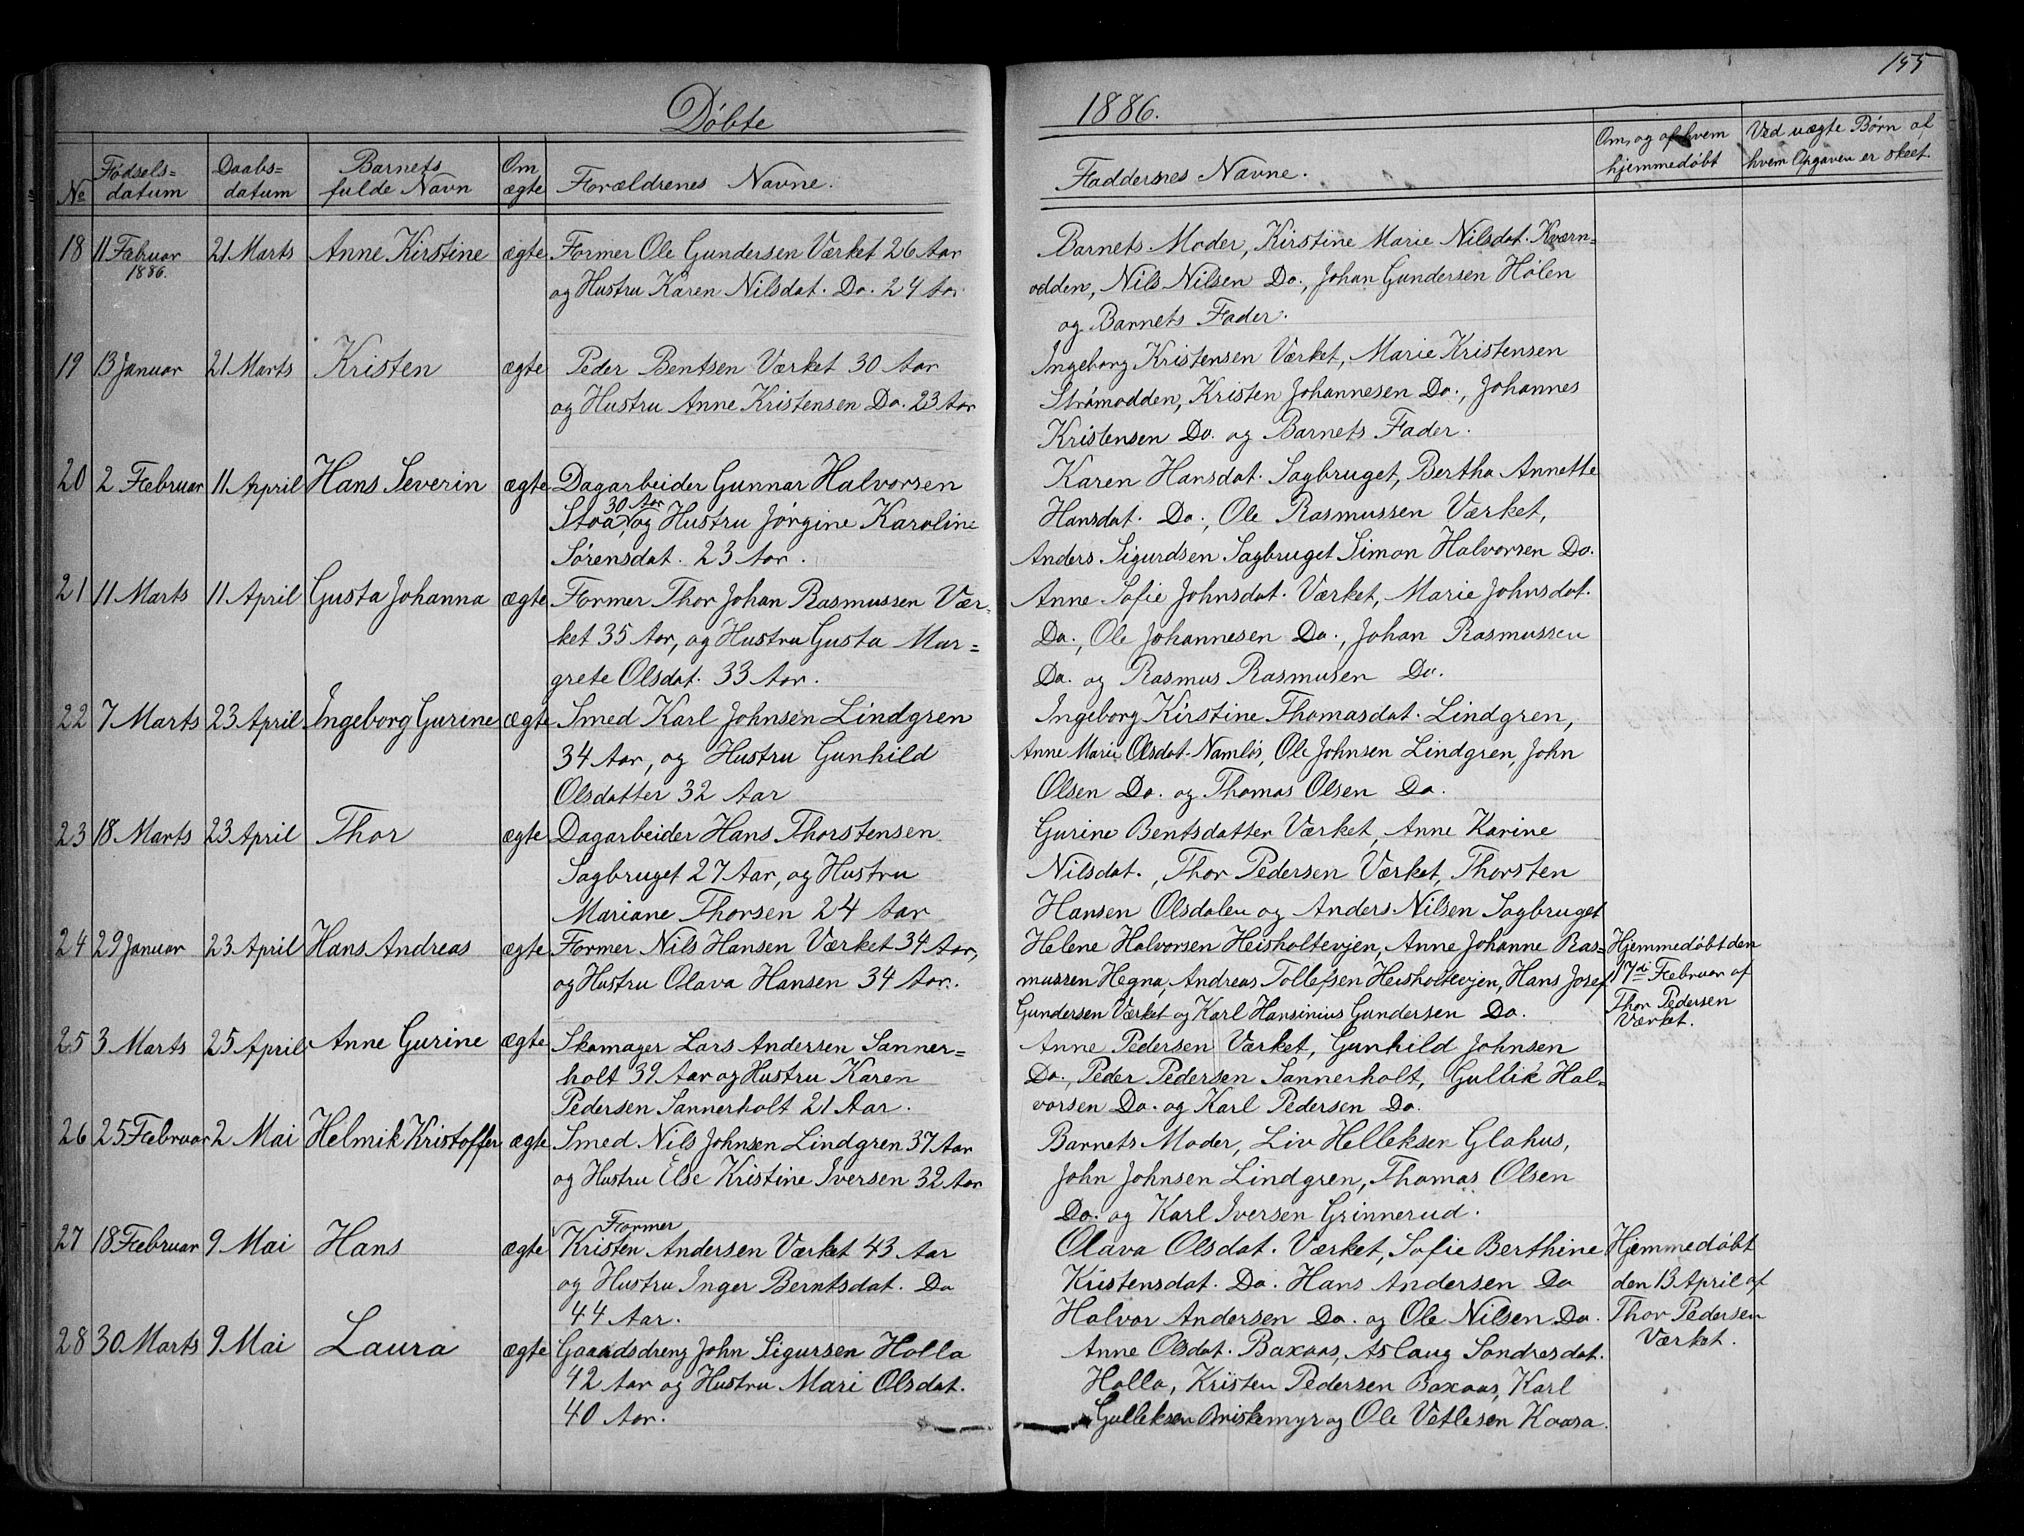 155
Døbte
1886.
No
Fødsels=
datum
Daabs=
datum
Barnets
fulde Navn
Om
ægte
Forældrenes Navne.
Faddernes Navne.
Om, og af hvem
hjemmedøbt
Ved uægte Børn af
hvem Opgaven er skeet.
18 11 Februar 21 Marts Anne Kirstine ægte Former Ole Gundersen Værket 26 Aar
1886.
og Hustru Karen Nilsdat. Do. 24 Aar
Barnets Moder, Kirstine Marie Nilsdat. Kværn=
odden, Nils Nilsen Do., Johan Gundersen Holen
og Barnets Fader.
19 13 Januar 21 Marts Kristen ægte Peder Bentsen Værket 30 Aar
og Hustru Anne Kristensen Do. 23 Aar
Ingeborg Kristensen Værket, Marie Kristensen
Strømodden, Kristen Johannesen Do., Johannes
Kristensen Do. og Barnets Fader.
20 2 Februar 11 April Hans Severin ægte Dagarbeider Gunnar Halvorsen
30 Aar
Stoa, og Hustru Jørgine Karoline
Sørensdat. 23 Aar.
Karen Hansdat. Sagbruget, Bertha Annette
Hansdat. Do., Ole Rasmussen Værket,
Anders Sigurdsen Sagbruget Simon Halvorsen Do.
21 11 Marts 11 April Gusta Johanna ægte Former Thor Johan Rasmussen Vær=
ket 35 Aar, og Hustru Gusta Mar=
grete Olsdat. 33 Aar.
Anne Sofie Johnsdat. Værket, Marie Johnsdat.
Do., Ole Johannesen Do., Johan Rasmussen
Do. og Rasmus Rasmusen Do.
22 7 Marts 23 April Ingeborg Gurine ægte Smed Karl Johnsen Lindgren
34 Aar, og Hustru Gunhild
Olsdatter 32 Aar
Ingeborg Kirstine Thomasdat. Lindgren,
Anne Marie Olsdat. Namløs, Ole Johnsen Lindgren, John
Olsen Do. og Thomas Olsen Do.
23 18 Marts 23 April Thor ægte Dagarbeider Hans Thorstensen
Sagbruget 27 Aar, og Hustru
Mariane Thorsen 24 Aar
Gurine Bentsdatter Værket, Anne Karine
Nilsdat., Thor Pedersen Værket, Thorsten
Hansen Olsdalen og Anders Nilsen Sagbruget
24 29 Januar 23 April Hans Andreas ægte Former Nils Hansen Værket 34 Aar,
og Hustru Olava Hansen 34 Aar.
Helene Halvorsen Heisholtevjen, Anne Johanne Ras=
mussen Hegna, Andreas Tollefsen Heisholtevjen, Hans Josef
Gundersen Værket og Karl Hansinius Gundersen Do.
Hjemmedøbt den
17de Februar af
Thor Pedersen
Værket.
25 3 Marts 25 April Anne Gurine ægte Skomager Lars Andersen Sanner=
holt 39 Aar og Hustru Karen
Pedersen Sannerholt 21 Aar.
Anne Pedersen Værket, Gunhild Johnsen
Do., Peder Pedersen Sannerholt, Gullik Hal=
vorsen Do. og Karl Pedersen Do.
26 25 Februar 2 Mai Helmik Kristoffer ægte Smed Nils Johnsen Lindgren 37 Aar
og Hustru Else Kristine Iversen 32 Aar
Barnets Moder, Liv Helleksen Glahus,
John Johnsen Lindgren, Thomas Olsen
Do. og Karl Iversen Grinnerud.
27 18 Februar 9 Mai Hans ægte Kristen Andersen Værket 43 Aar
Former
og Hustru Inger Berntsdat. Do
44 Aar.
Olava Olsdat. Værket, Sofie Berthine
Kristensdat. Do. Hans Andersen Do
Halvor Andersen Do. og Ole Nilsen Do.
Hjemmedøbt
den 13 April af
Thor Pedersen
Værket.
28 30 Marts 9 Mai Laura ægte Gaardsdreng John Sigursen Holla
42 Aar og Hustru Mari Olsdat.
40 Aar.
Anne Olsdat. Baxaas, Aslaug Sondresdat.
Holla, Kristen Pedersen Baxaas, Karl
Gulleksen Briskemyr og Ole Vetlesen Kaasa.